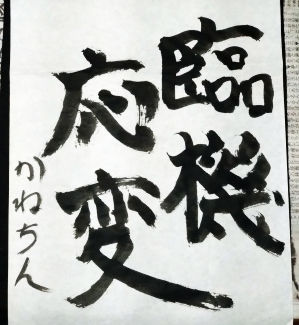 臨機
応変
かねちん